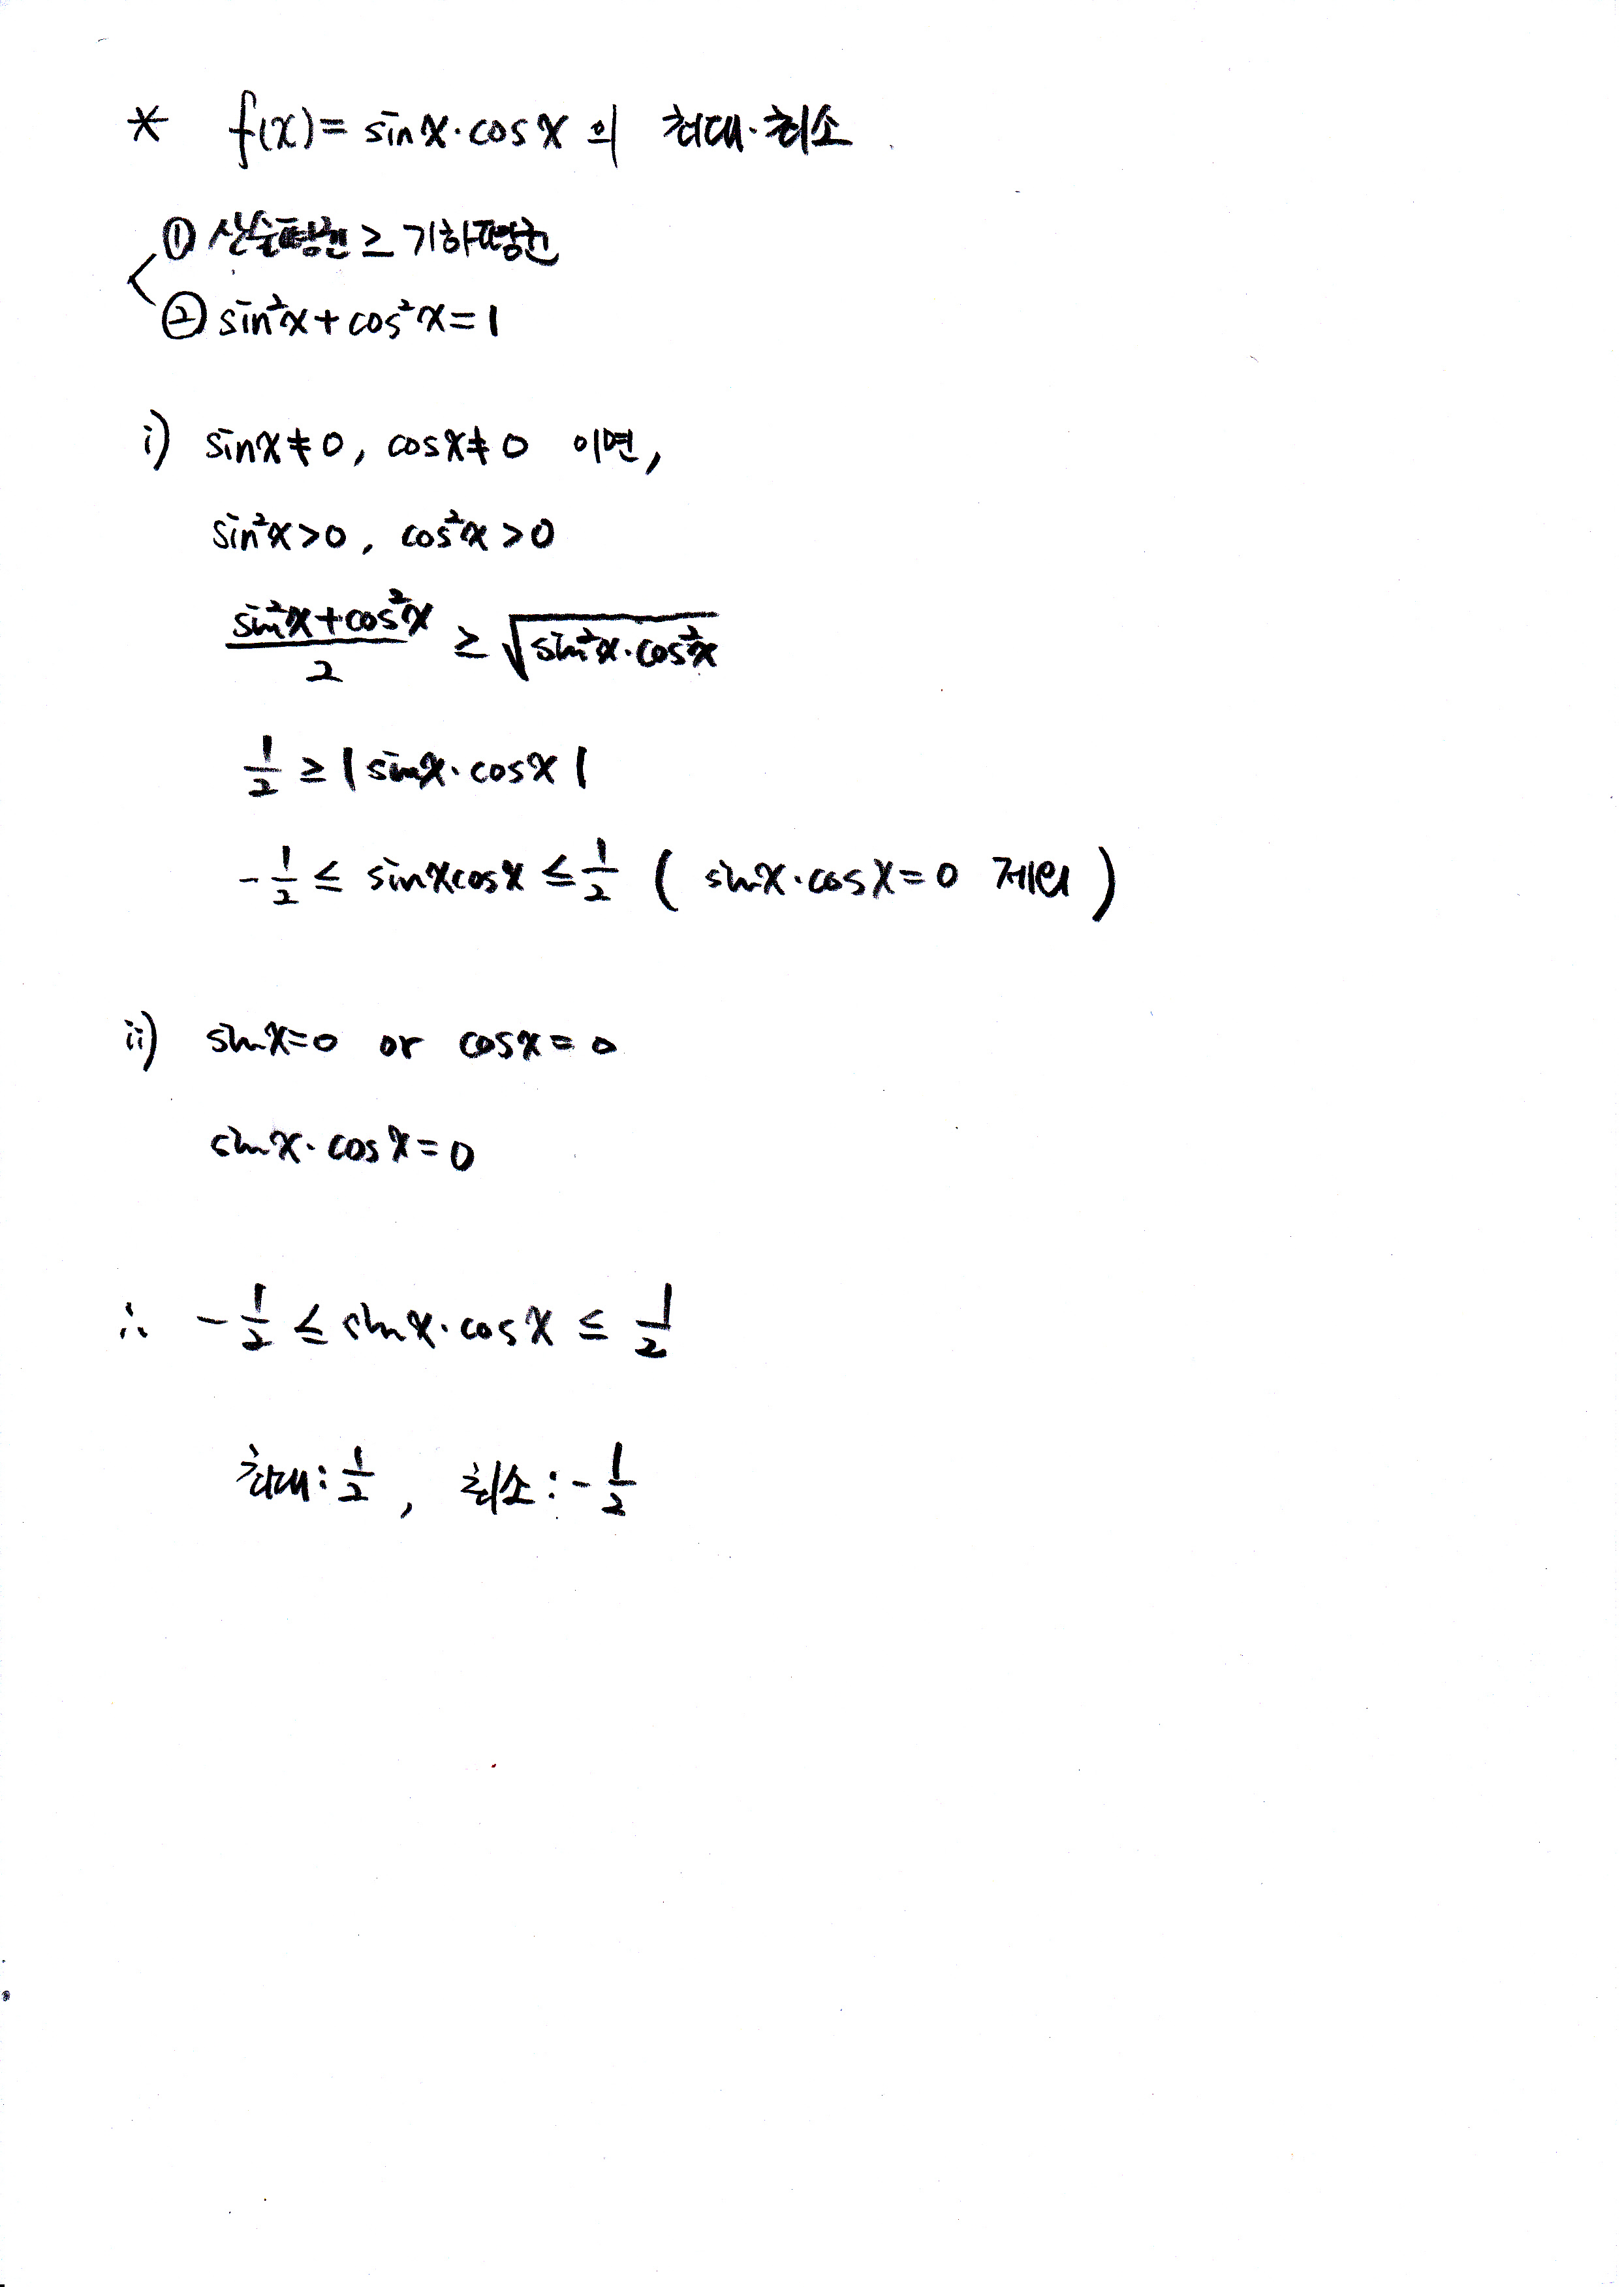 * f(x) = sinx·cosx 의 최대·최소
① 산술평균 ≥ 기하평균
② sin²x + cos²x = 1
i) sinx ≠ 0, cosx ≠ 0 이면,
sin²x > 0, cos²x > 0
(sin²x + cos²x)/2 ≥ √(sin²x·cos²x)
1/2 ≥ |sinx·cosx|
-1/2 ≤ sinxcosx ≤ 1/2 ( sinx·cosx = 0 제외 )
ii) sinx = 0 or cosx = 0
sinx·cosx = 0
∴ -1/2 ≤ sinx·cosx ≤ 1/2
최대 : 1/2, 최소 : -1/2